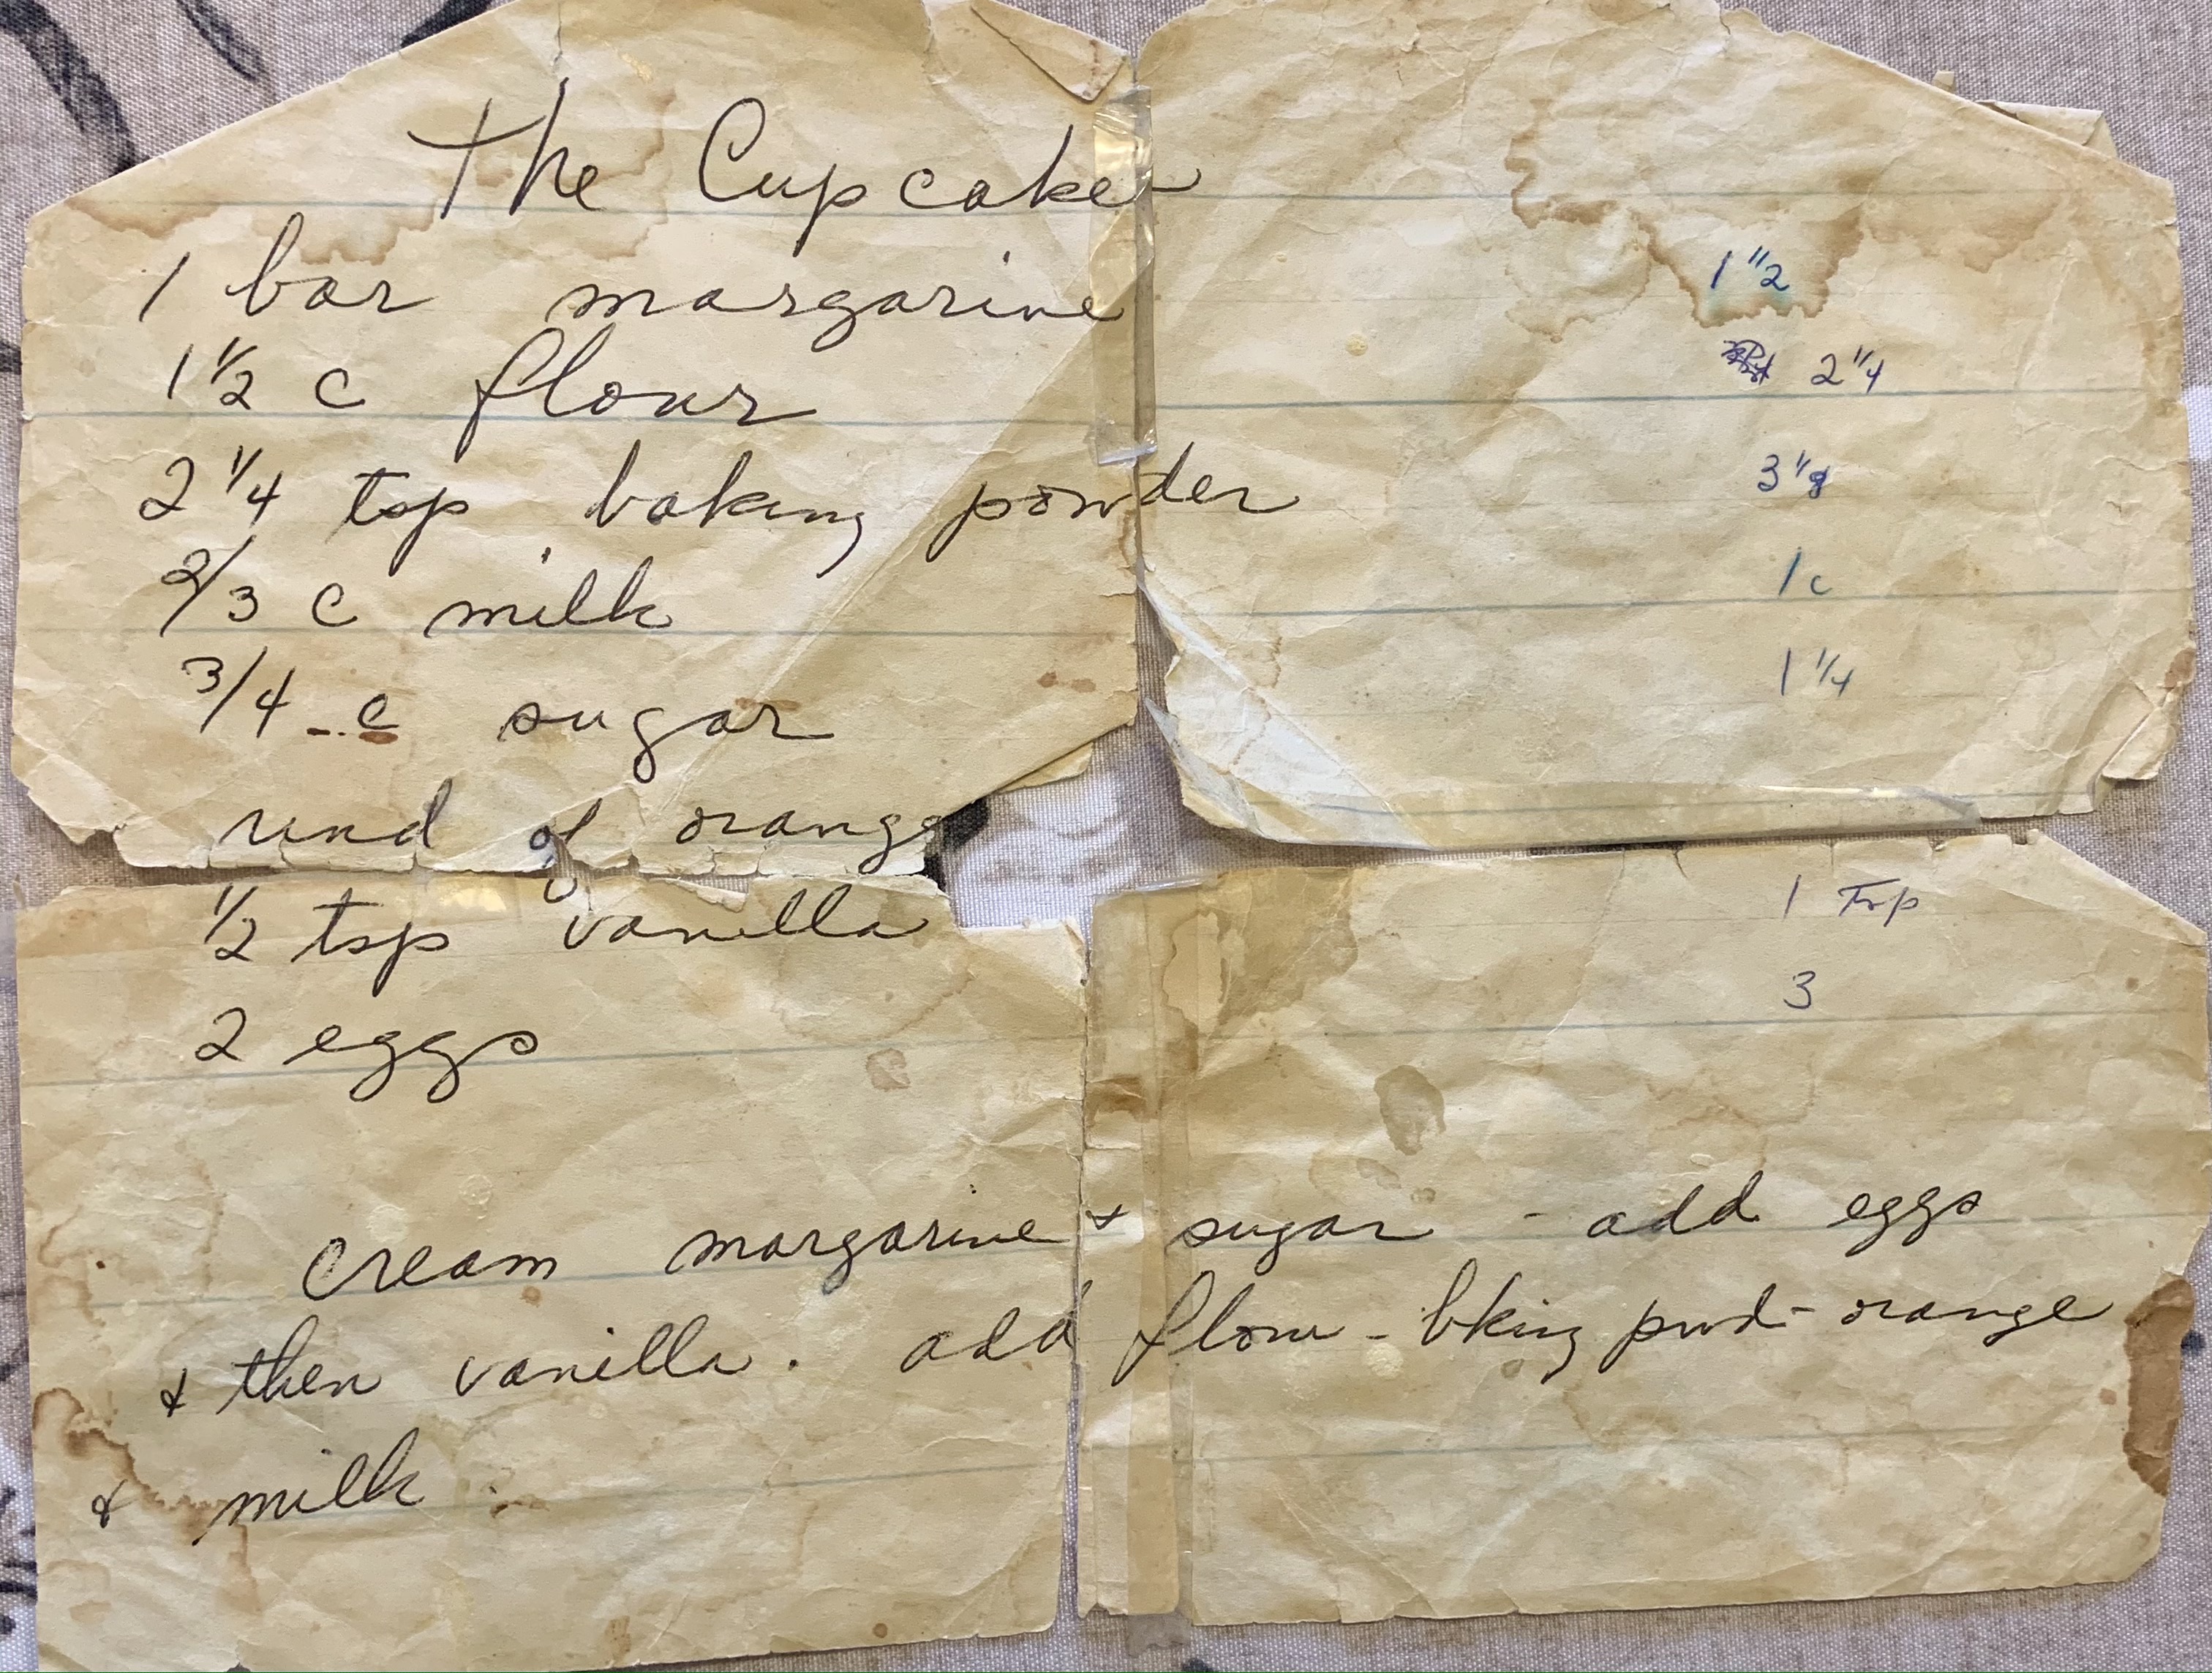 The Cupcake
1 bar margarine 1 1/2
1 1/2 c flour 2 1/4
2 1/4 tsp baking powder 3 1/8
2/3 c milk 1 c
3/4 c sugar 1 1/4
rind of orange
1/2 tsp vanilla 1 Tsp
2 eggs 3
Cream margarine & sugar - add eggs
& then vanilla. add flour - bking pwd - orange
& milk.